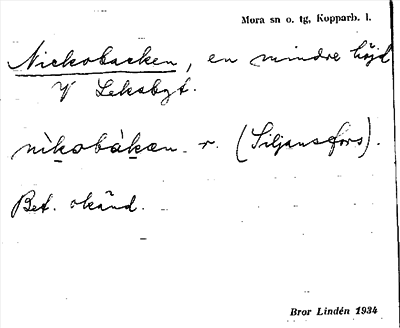 Mora sn o. tg, Kopparb. l.
Nickobacken, en mindre höjd
V Leksbgt.
nìkobàkæn r. (Siljansfors).
Bet. okänd.
Bror Lindén 1934